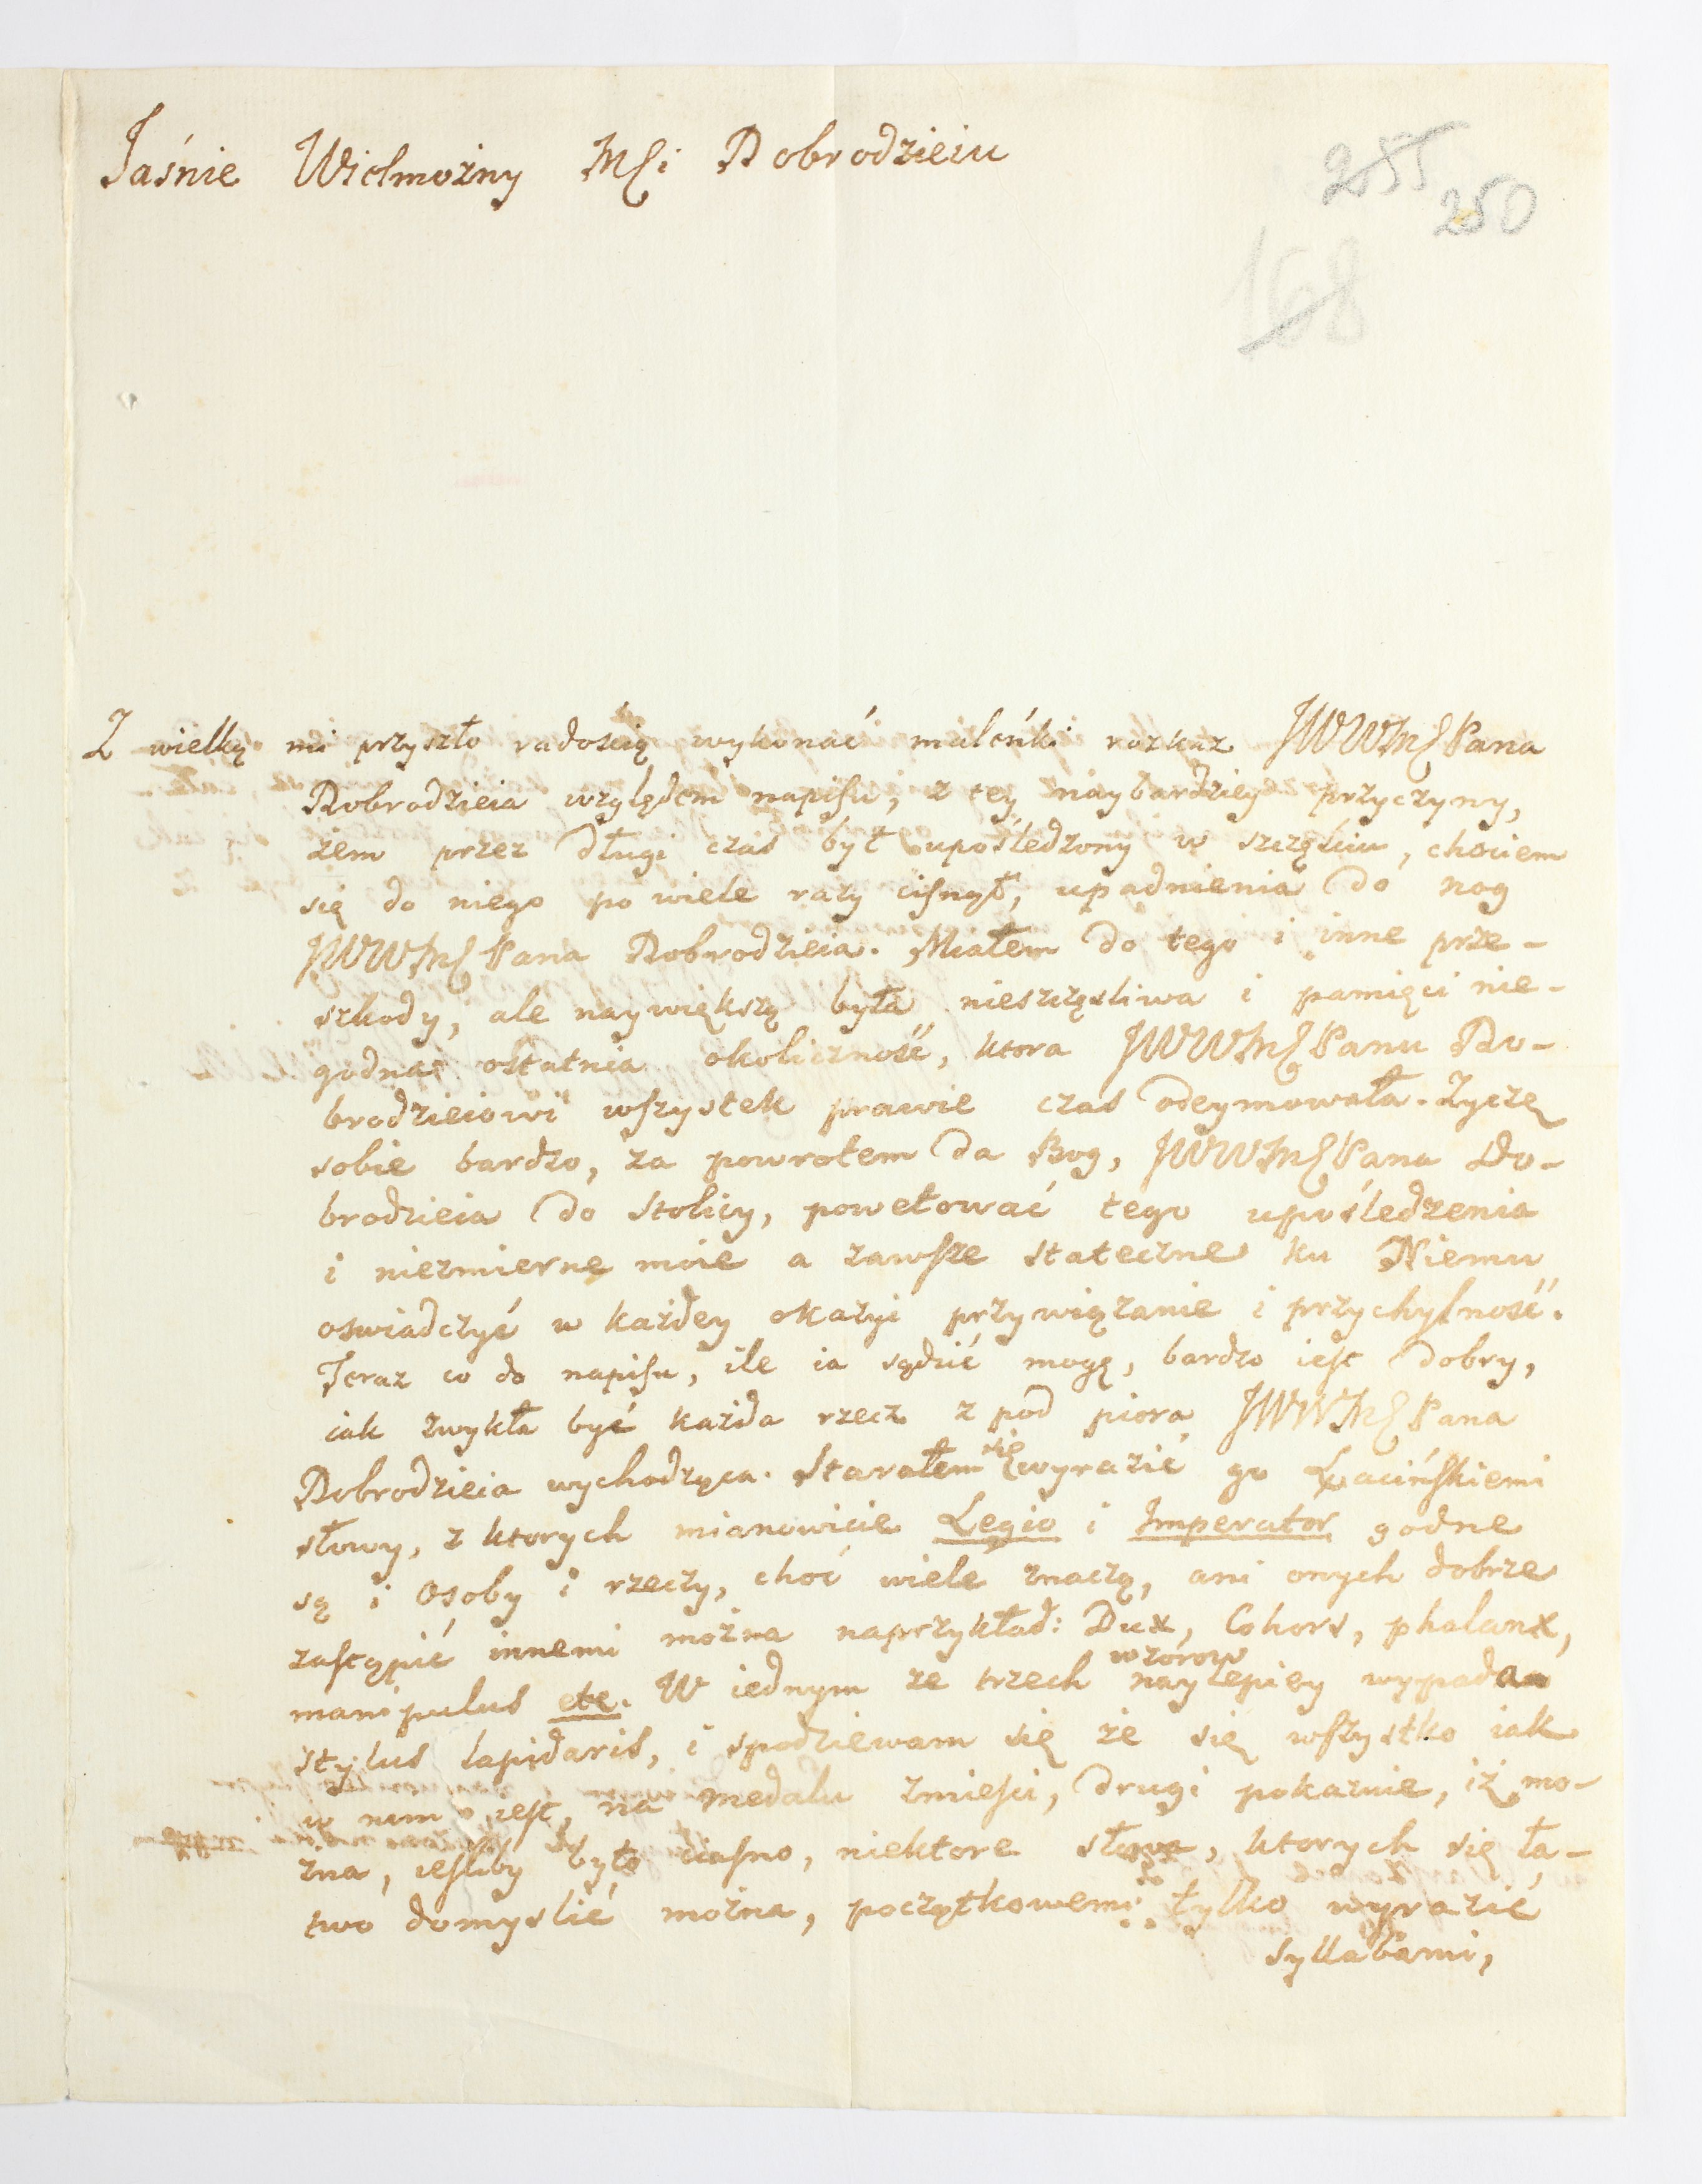 Jaśnie Wielmożny Mći Dobrodzieiu
255
250
168
Z wielką mi przyszło radością wykonać maleńki rozkaz JWWMć Pana
Dobrodzieia względem napisu, z tey naybardziey przyczyny,
żem przez długi czas był upośledzony w szczęściu, chociem
się do niego po wiele razy cisnął, upadnienia do nog
JWWMć Pana Dobrodzieia. Miałem do tego i inne prze-
szkody, ale naywiększą była nieszczęsliwa i pamięci nie-
godna ostatnia okoliczność, ktora JWWMć Panu Do-
brodzieiowi wszystek prawie czas odeymowała. Zyczę
sobie bardzo, za powrotem da Bog, JWWMć Pana Do-
brodzieia do stolicy, powetować tego upośledzenia
i niezmierne moie a zawsze stateczne ku Niemu
oswiadczyć w każdey okazyi przywiązanie i przychylność.
Teraz co do napisu, ile ia sądzić mogę, bardzo iest dobry,
iak zwykła być każda rzecz z pod piora JWWMć Pana
Dobrodzieia wychodząca. Starałem się wyrazić go Łacińskiemi
słowy, z ktorych mianowicie Legio i Imperator godne
są i Osoby i rzeczy, choć wiele znaczą, ani onych dobrze
zastąpić innemi można naprzykład: Dux, Cohors, phalanx,
manipulus etc. W iednym ze trzech wzorow naylepiey wypada
stylus lapidaris, i spodziewam się że się wszystko iak
w nim iest, na medalu zmieści, drugi pokazuie, iż mo-
żna, iesliby było ciasno, niektore słowa, ktorych się ła-
two domyslić można, początkowemi tylko wyrazić
syllabami,